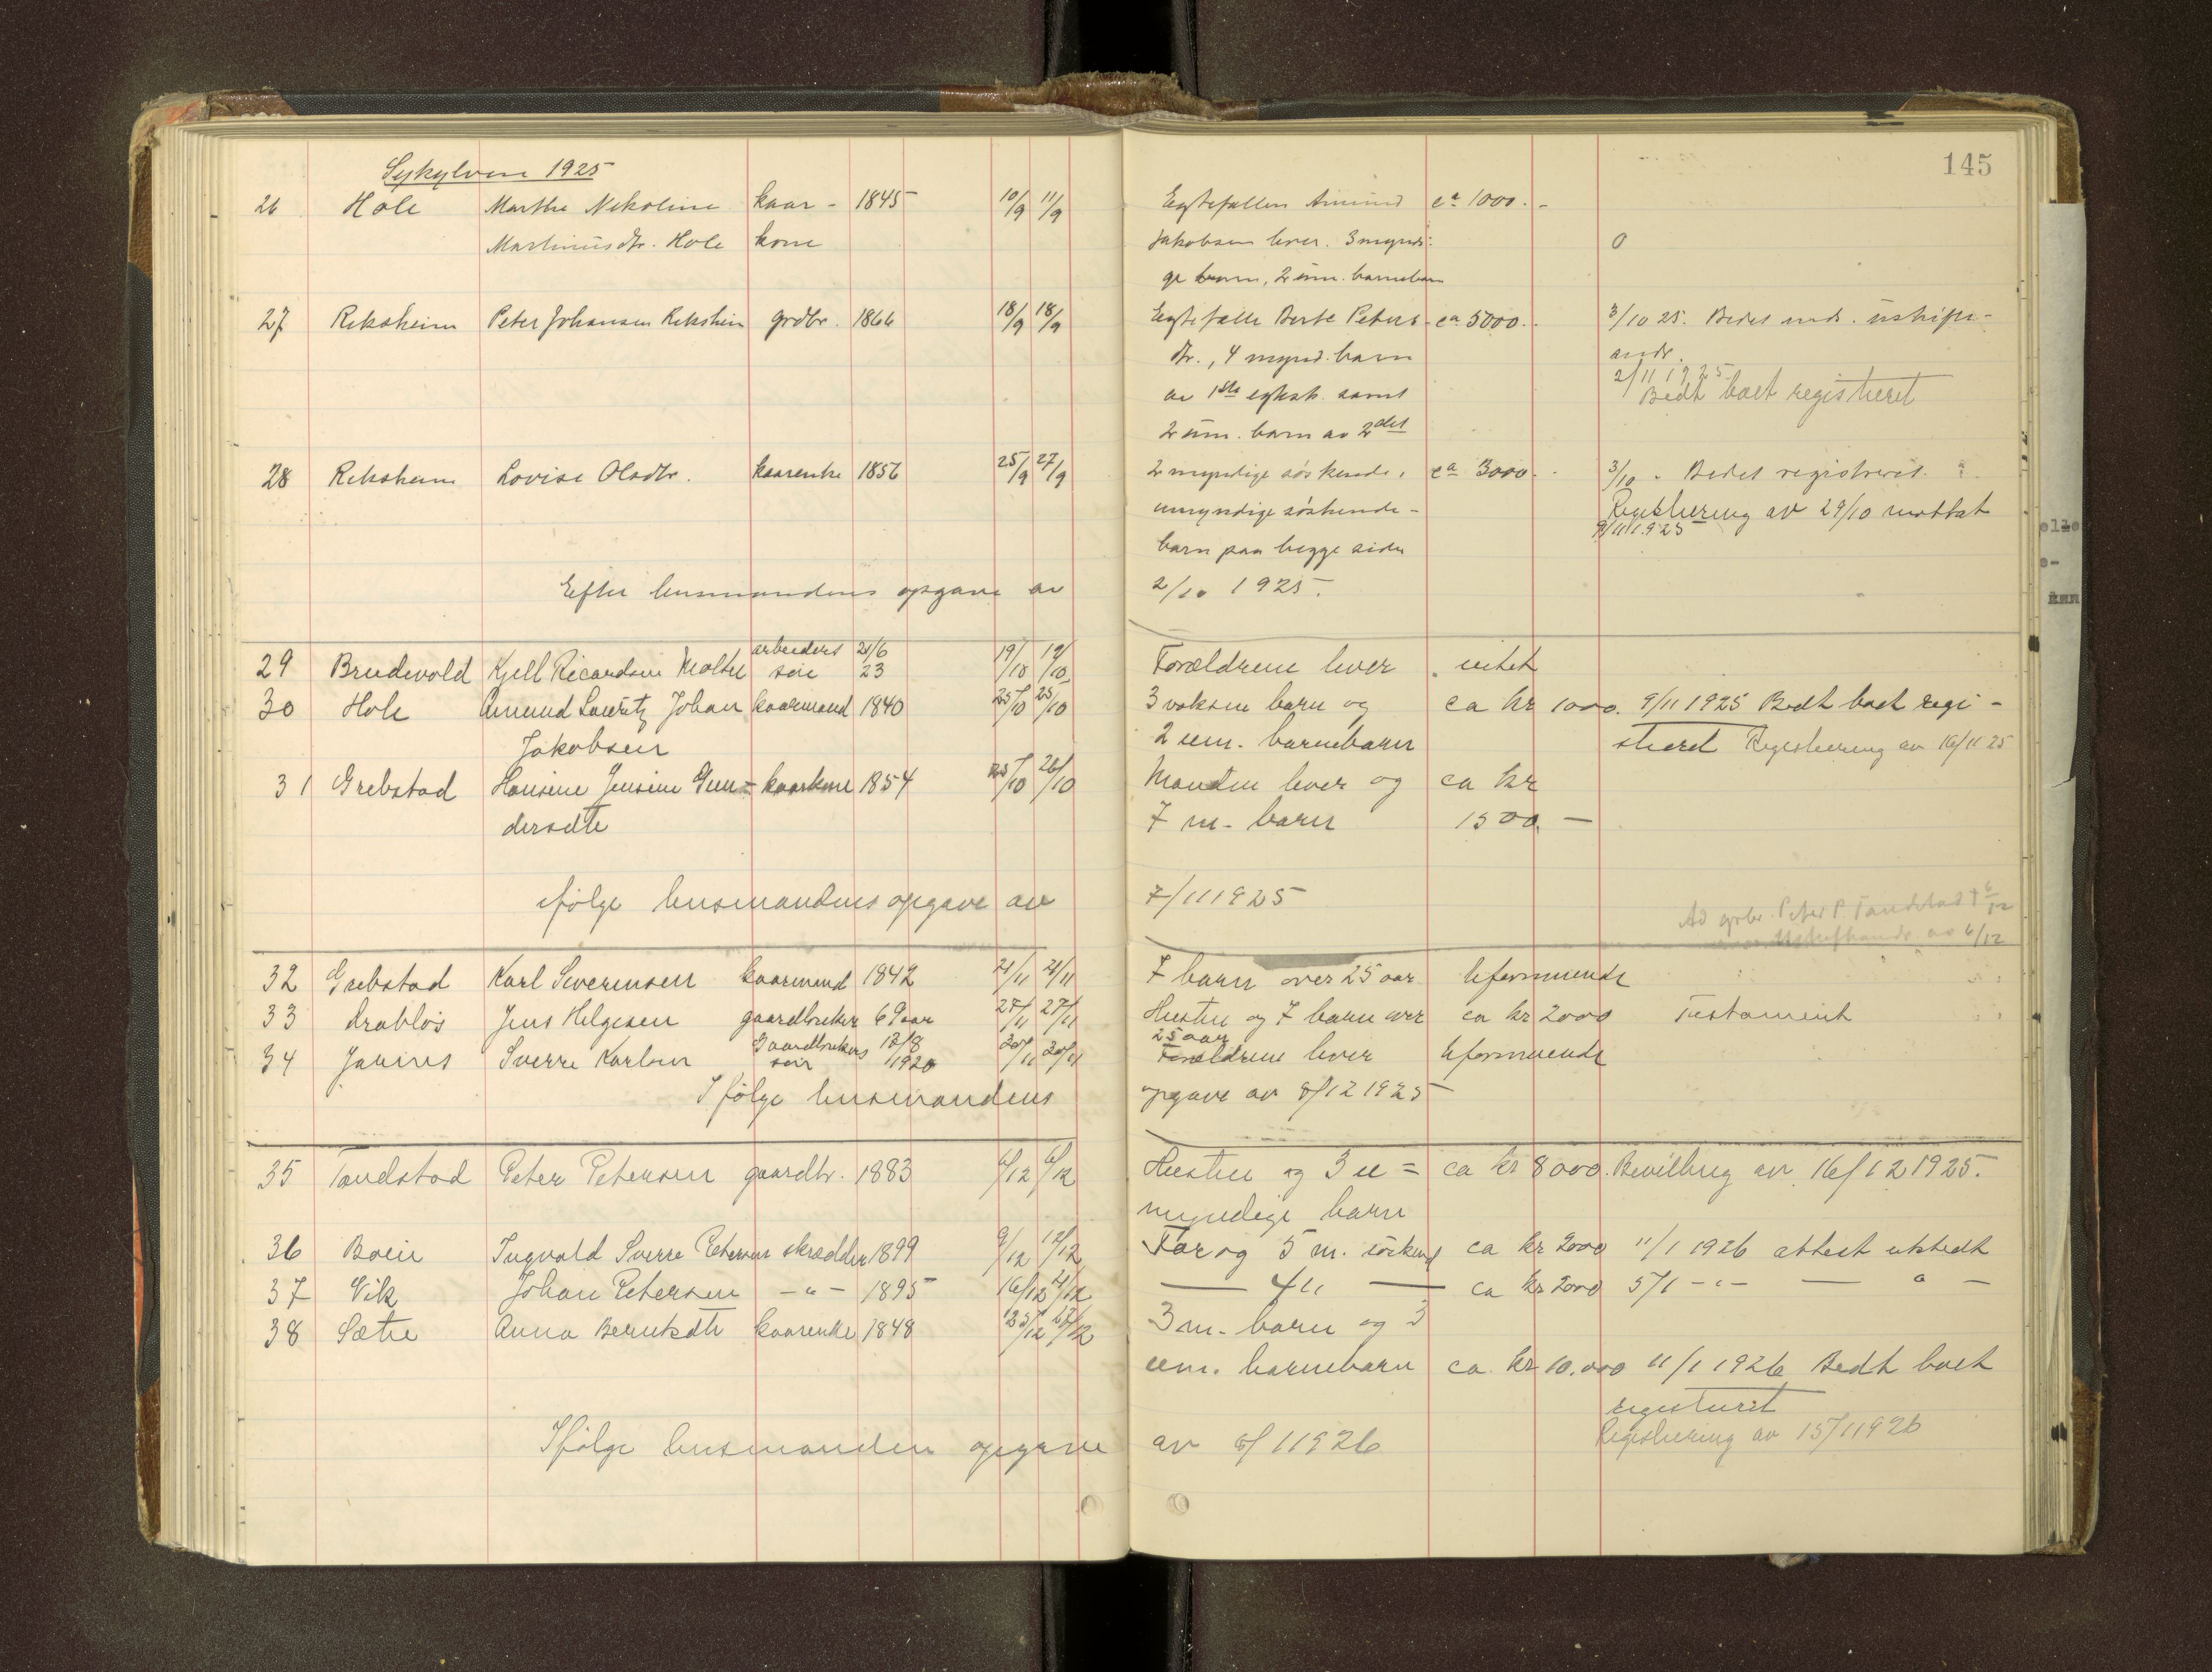 145
Sykylven 1925
26 Hole Marthe Nikoline kaar- 1845 10/9 11/9 Egtefællen Amund ca 1000.-
Martinusdtr. Hole kone Jakobsen lever. 3 myndi- 0
ge barn, 2 um. barnebarn
27 Reksheim Peter Johansen Reksheim grdbr. 1866 18/9 18/9 Egtefælle Berte Peters- ca 5000.- 3/10 25. Bedet uskifte-
dtr., 4 mynd. barn andr.
2/11 1925
av 1ste egtesk. samt Bedt boet registreret
2 um. barn av 2det
28 Reksheim Lovise Olsdtr. kaarenke 1856 25/9 27/9 2 myndige søskende, ca 3000.- 3/10 - Bedet registreret.
umyndige søskende- Registrering av 29/10 mottat
9/11 1925
barn paa begge sider
Efter lensmandens opgave av 2/10 1925.
29 Brudevold Kjell Ricardsen arbeiders søn 21/6 23 19/10 19/10 Forældrene lever intet
30 Hole Amund Lauritz Johan kaarmand 1840 25/10 25/10 3 voksne barn og ca kr 1000. 9/11 1925 Bedt boet regi-
Jakobsen 2 um. barnebarn streret Registrering av 16/11 25
31 Grebstad Hansine Jensine Gun- kaarkone 1854 25/10 26/10 Manden lever og ca kr
dersdtr 7 m. barn 1500.-
ifølge lensmandens opgave av 7/11 1925
Ad grbr. Peter P. Tandstad † 6/12
av 6/12
32 Grebstad Karl Severinsen kaarmand 1842 21/11 21/11 7 barn over 25 aar Uformuende
33 Drabløs Jens Helgesen gaardbruker 69 aar 27/11 27/11 Hustru og 7 barn over ca kr 2000 Testament
25 aar
34 Sverre Karlsen Gaardbrukers søn 12/8 1920 20/11 20/11 Forældrene lever Uformuende
Ifølge lensmandens opgave av 8/12 1925
35 Tandstad Peter Petersen gaardbr. 1883 6/12 6/12 Hustru og 3 u= ca kr 8000. Bevilling av 16/12 1925.
myndige barn
36 Ingvald Sverre Petersen skrædder 1899 9/12 12/12 Far og 5 m. søskend ca kr 2000 11/1 1926 attest utstedt
37 Vik Johan Petersen -"- 1895 16/12 21/12 — 4 " — ca kr 2000 5/1 -"- — " -
38 Sætre Anna Berntsdtr kaarenke 1848 25/12 28/12 3 m. barn og 3
um. barnebarn ca. kr 10.000 11/1 1926 Bedt boet
registreret
Registrering av 15/1 1926
Ifølge lensmanden opgave av 8/1 1926